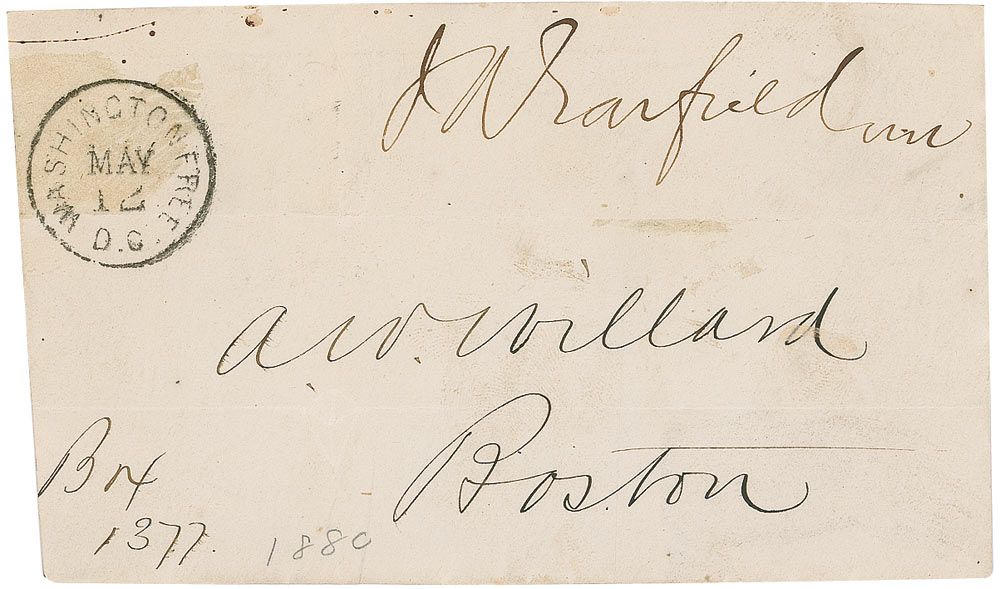 J A Garfield mc
WASHINGTON FREE
MAY
12
D.C.
A. W. Willard
Boston
Box
1377.
1880